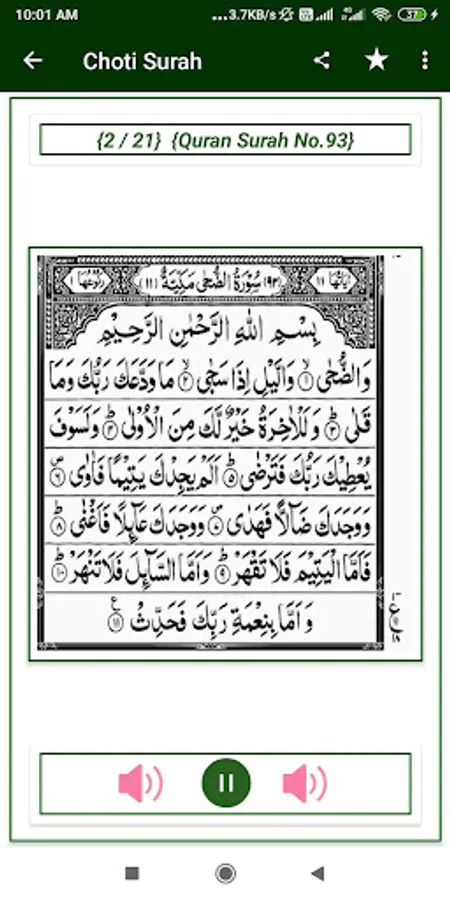 10:01 AM ...3.7KB/s 37
Choti Surah
{2 / 21} {Quran Surah No.93}
اٰیَاتُهَا ١١ ﴿٩٣﴾ سُوْرَةُ الضُّحٰی مَكِّیَّةٌ ﴿١١﴾ رُكُوْعُهَا ١
بِسْمِ اللّٰهِ الرَّحْمٰنِ الرَّحِیْمِ
وَالضُّحٰی ۙ﴿١﴾ وَالَّیْلِ اِذَا سَجٰی ۙ﴿٢﴾ مَا وَدَّعَكَ رَبُّكَ وَمَا
قَلٰی ؕ﴿٣﴾ وَلَلْاٰخِرَةُ خَیْرٌ لَّكَ مِنَ الْاُوْلٰی ؕ﴿٤﴾ وَلَسَوْفَ
یُعْطِیْكَ رَبُّكَ فَتَرْضٰی ؕ﴿٥﴾ اَلَمْ یَجِدْكَ یَتِیْمًا فَاٰوٰی ۪﴿٦﴾
وَوَجَدَكَ ضَآلًّا فَهَدٰی ۪﴿٧﴾ وَوَجَدَكَ عَآىِٕلًا فَاَغْنٰی ؕ﴿٨﴾
فَاَمَّا الْیَتِیْمَ فَلَا تَقْهَرْ ؕ﴿٩﴾ وَاَمَّا السَّآىِٕلَ فَلَا تَنْهَرْ ؕ﴿١٠﴾
وَاَمَّا بِنِعْمَةِ رَبِّكَ فَحَدِّثْ ﴿١١﴾ ع